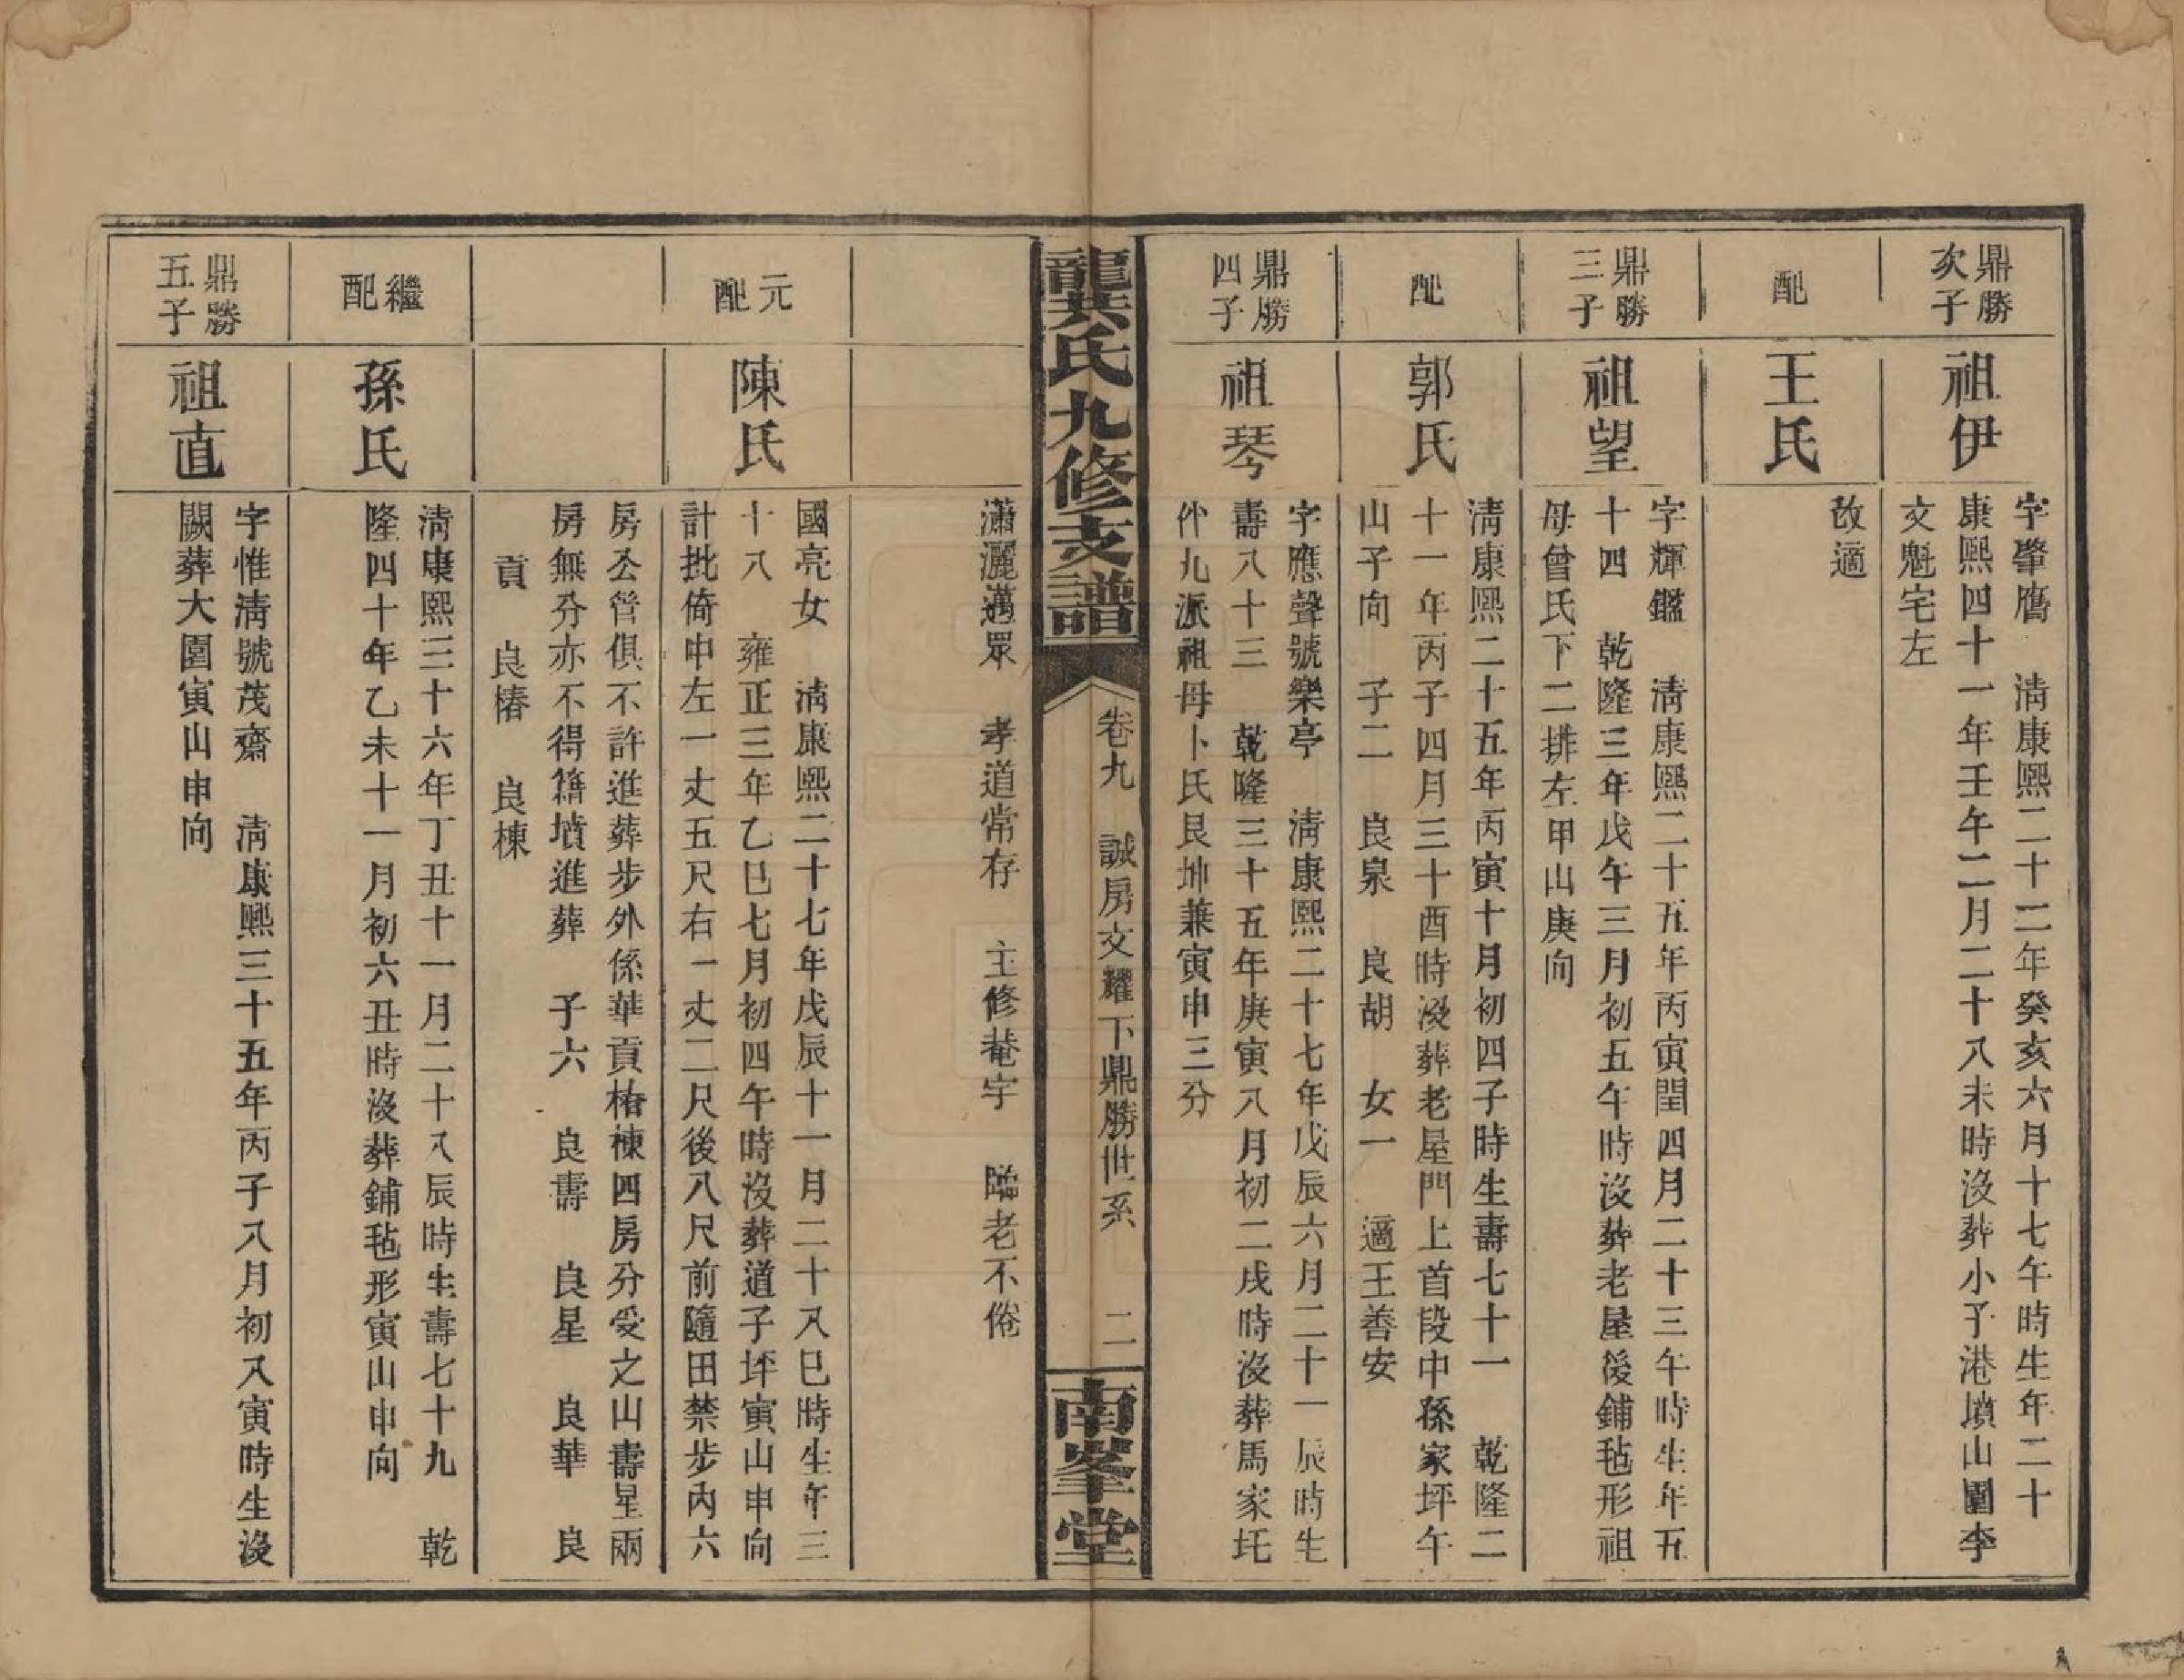 鼎勝
次子
祖伊
字肇鷹 清康熙二十二年癸亥六月十七午時生年二十
康熙四十一年壬午二月二十八未時没葬小子港墳山圍李
文魁宅左
配
王氏
改適
鼎勝
三子
祖望
字輝鑑 清康熙二十五年丙寅閏四月二十三午時生年五
十四 乾隆三年戊午三月初五午時没葬老屋後鋪毡形祖
母曾氏下二排左甲山庚向
配
郭氏
清康熙二十五年丙寅十月初四子時生壽七十一 乾隆二
十一年丙子四月三十酉時没葬老屋門上首段中孫家坪午
山子向 子二 良泉 良胡 女一 適王善安
鼎勝
四子
祖琴
字應聲號樂亭 清康熙二十七年戊辰六月二十一辰時生
壽八十三 乾隆三十五年庚寅八月初二戌時没葬馬家圫
仲九派祖母卜氏艮坤兼寅申三分
龍氏九修支譜
卷九 誠房文耀下鼎勝世系 二
南峯堂
瀟灑邁眾 孝道常存 主修菴宇 臨老不倦
元
配
陳氏
國亮女 清康熙二十七年戊辰十一月二十八巳時生年三
十八 雍正三年乙巳七月初四午時没葬道子坪寅山申向
計批倚中左一丈五尺右一丈二尺後八尺前隨田禁步内六
房公管俱不許進葬步外係華貢椿棟四房分受之山壽星兩
房無分亦不得籍墳進葬 子六 良壽 良星 良華 良
貢 良椿 良棟
繼
配
孫氏
清康熙三十六年丁丑十一月二十八辰時生壽七十九 乾
隆四十年乙未十一月初六丑時没葬鋪毡形寅山申向
鼎勝
五子
祖直
字惟清號茂齋 清康熙三十五年丙子八月初八寅時生没
闕葬大園寅山申向